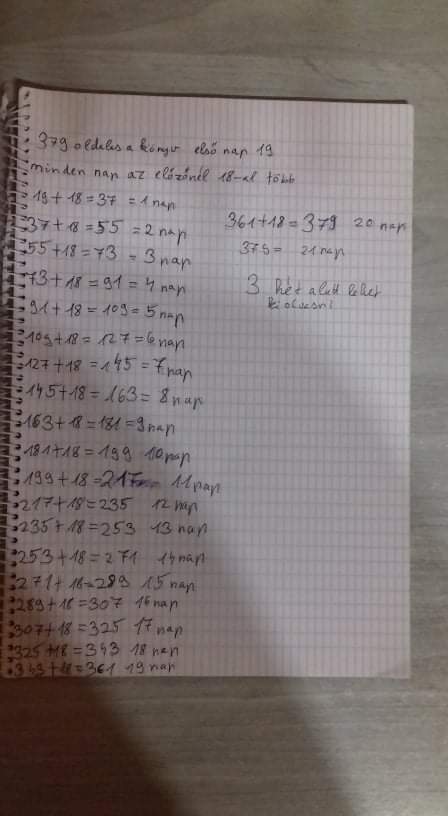 379 oldalas a könyv első nap 19
minden nap az előzőnél 18-al több
19 + 18 = 37 = 1 nap
37 + 18 = 55 = 2 nap
55 + 18 = 73 = 3 nap
73 + 18 = 91 = 4 nap
91 + 18 = 109 = 5 nap
109 + 18 = 127 = 6 nap
127 + 18 = 145 = 7 nap
145 + 18 = 163 = 8 nap
163 + 18 = 181 = 9 nap
181 + 18 = 199 10 nap
199 + 18 = 217 11 nap
217 + 18 = 235 12 nap
235 + 18 = 253 13 nap
253 + 18 = 271 14 nap
271 + 18 = 289 15 nap
289 + 18 = 307 16 nap
307 + 18 = 325 17 nap
325 + 18 = 343 18 nap
343 + 18 = 361 19 nap
361 + 18 = 379 20 nap
379 = 21 nap
3 hét alatt lehet
kiolvasni